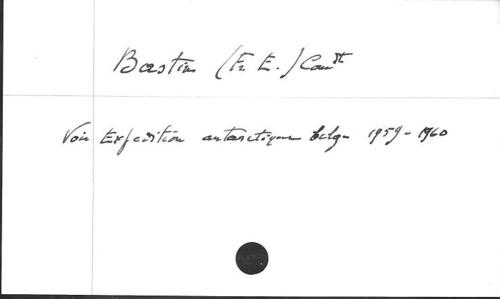 Bastin (Fr. E.) Comdt
Voir Expedition antarctique belge 1959-1960